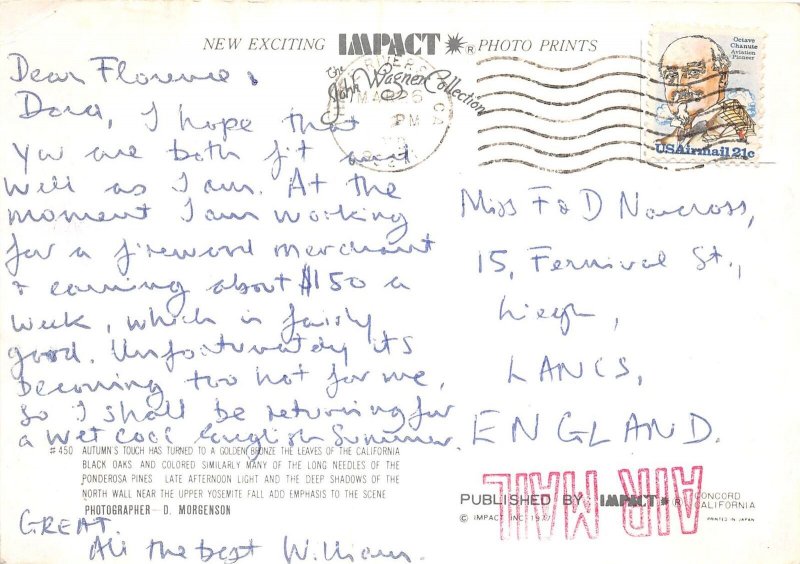 NEW EXCITING IMPACT ® PHOTO PRINTS
The John Wagner Collection
MAR 26
PM
CA
Octave
Chanute
Aviation
Pioneer
USAirmail 21c
Dear Florence,
Dora, I hope that
You are both fit and
well as I am. At the
moment I am working
for a firewood merchant
+ earning about $150 a
week, which is fairly
good. Unfortunately its
becoming too hot for me,
so I shall be returning for
a wet cool English Summer.
Miss F & D Norcross,
15, Fernival St.,
Liegh,
LANCS,
ENGLAND.
#450 AUTUMN'S TOUCH HAS TURNED TO A GOLDEN BRONZE THE LEAVES OF THE CALIFORNIA
BLACK OAKS AND COLORED SIMILARLY MANY OF THE LONG NEEDLES OF THE
PONDEROSA PINES LATE AFTERNOON LIGHT AND THE DEEP SHADOWS OF THE
NORTH WALL NEAR THE UPPER YOSEMITE FALL ADD EMPHASIS TO THE SCENE
PHOTOGRAPHER— D. MORGENSON
GREAT.
All the best William.
PUBLISHED BY IMPACT ® CONCORD
CALIFORNIA
© IMPACT INC 1977
PRINTED IN JAPAN
AIR MAIL